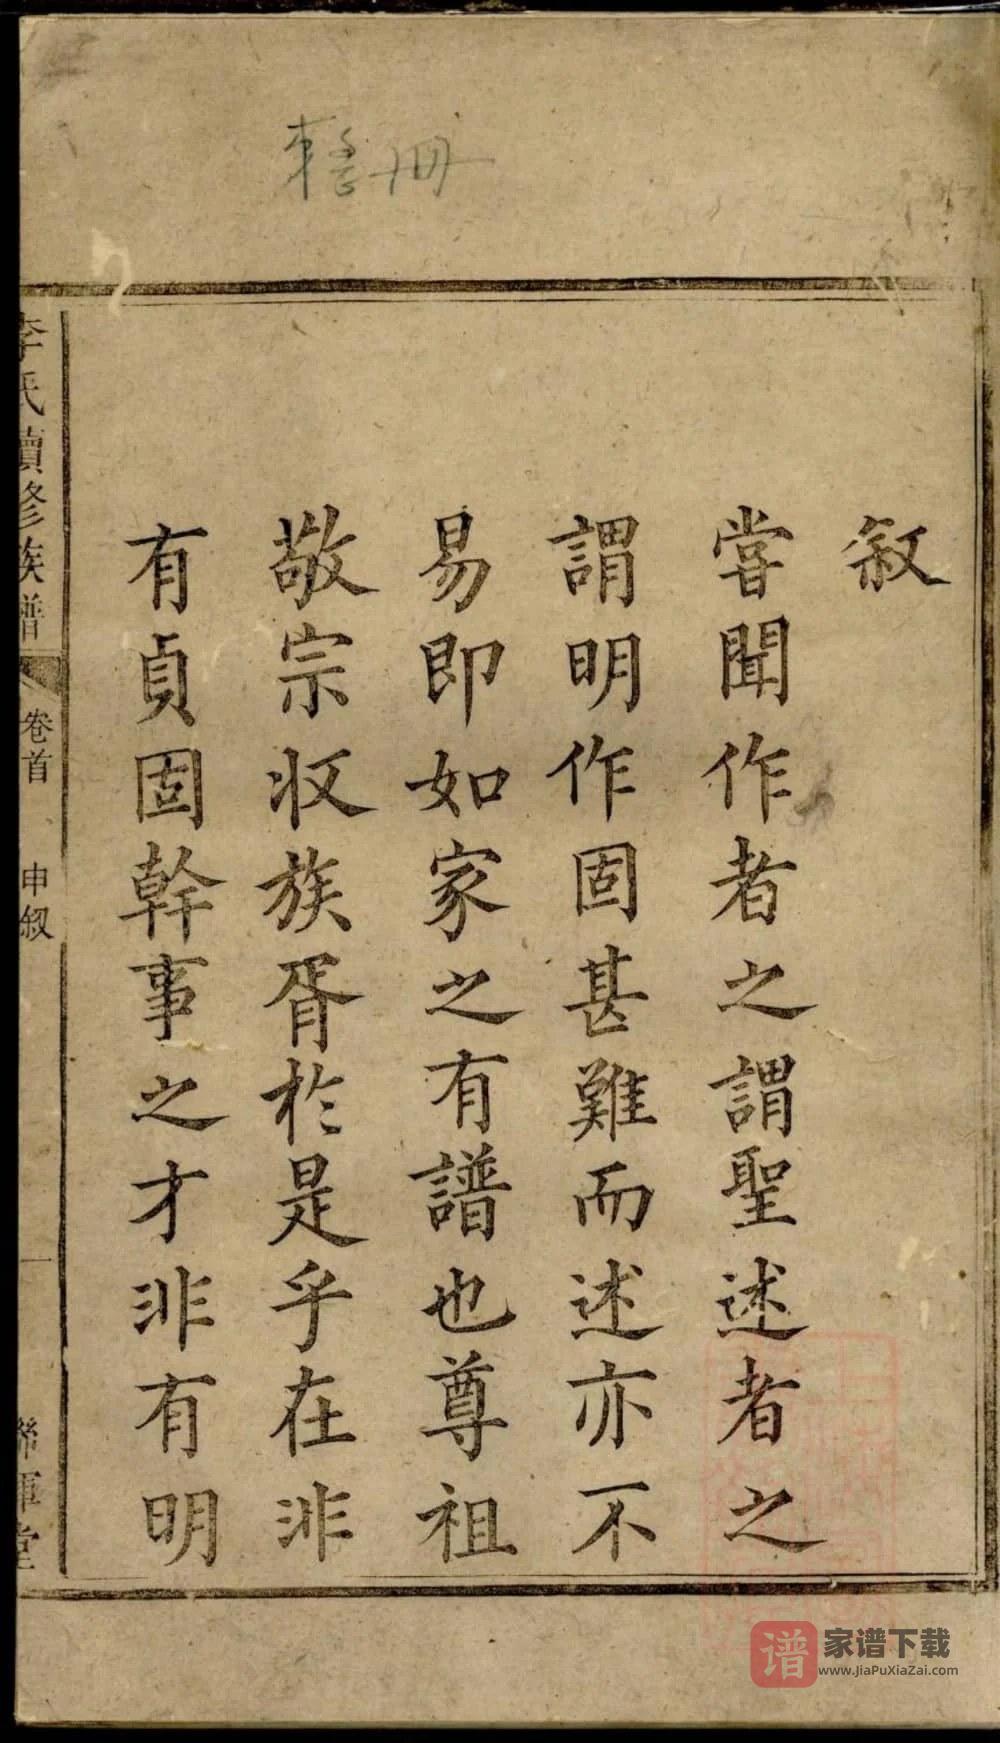 叙
嘗聞作者之謂聖述者之
謂明作固甚難而述亦不
易即如家之有譜也尊祖
敬宗收族胥於是乎在非
有貞固幹事之才非有明
李氏續修族譜
卷首
申叙
一
聯輝堂
譜
家谱下载
www.JiaPuXiaZai.com